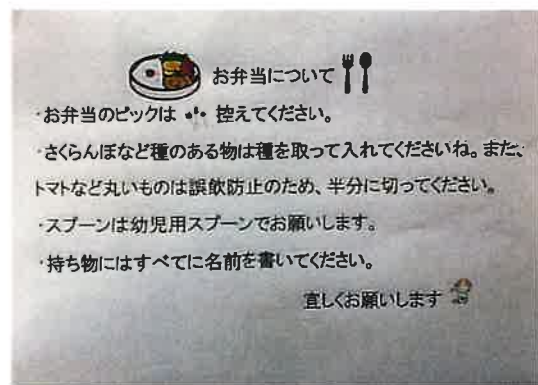 お弁当について
・お弁当のピックは 控えてください。
・さくらんぼなど種のある物は種を取って入れてくださいね。また、
トマトなど丸いものは誤飲防止のため、半分に切ってください。
・スプーンは幼児用スプーンでお願いします。
・持ち物にはすべてに名前を書いてください。
宜しくお願いします